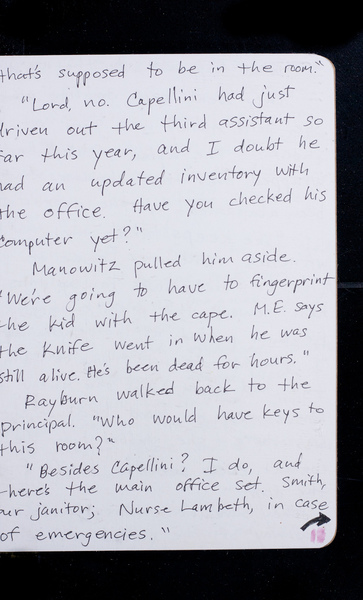 that's supposed to be in the room."
"Lord, no. Capellini had just
driven out the third assistant so
far this year, and I doubt he
had an updated inventory with
the office. Have you checked his
computer yet?"
Manowitz pulled him aside.
"We're going to have to fingerprint
the kid with the cape. M.E. says
the knife went in when he was
still alive. He's been dead for hours."
Rayburn walked back to the
principal. "Who would have keys to
this room?"
"Besides Capellini? I do, and
there's the main office set. Smith,
our janitor; Nurse Lambeth, in case
of emergencies."